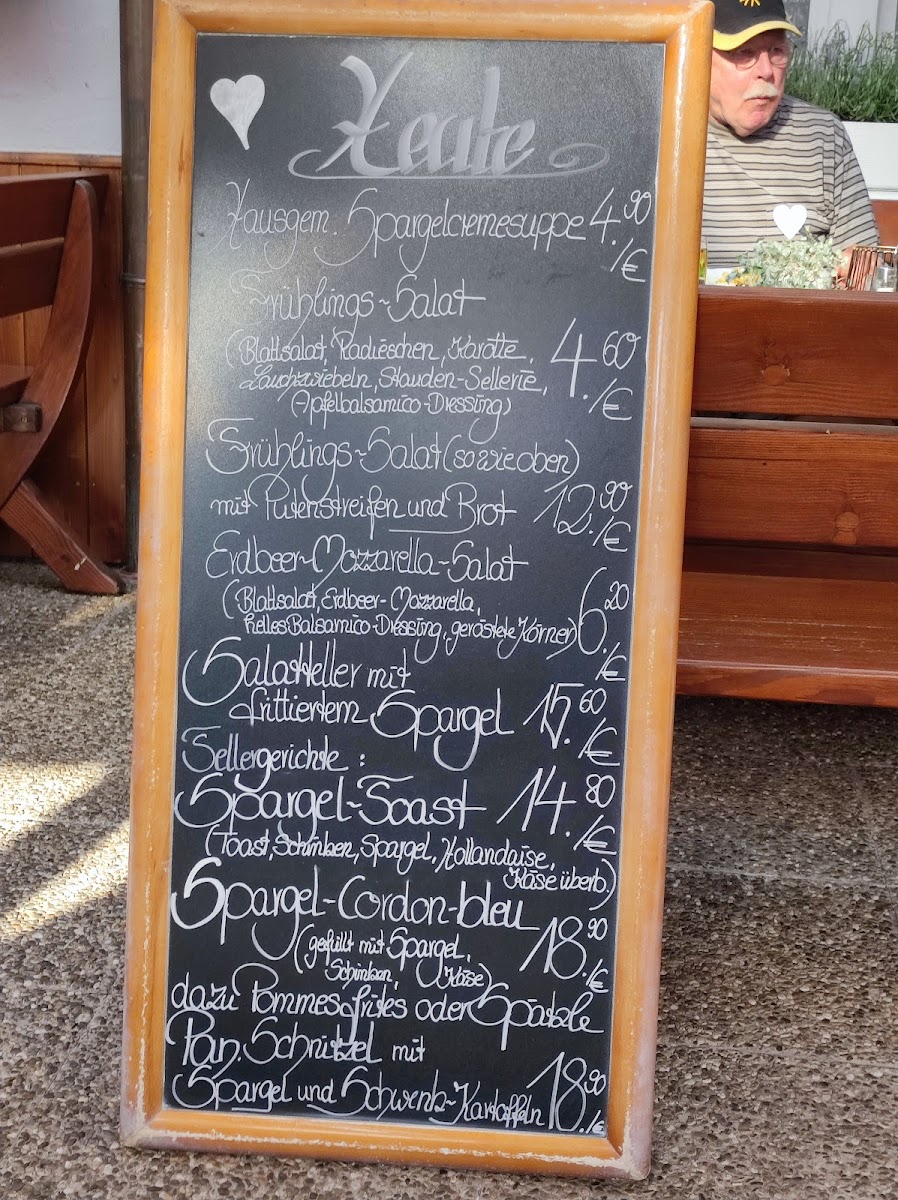 Heute
Hausgem. Spargelcremesuppe 4.90
./€
Frühlings-Salat
(Blattsalat, Radieschen, Karotte,
Lauchzwiebeln, Stauden-Sellerie, 4.60
(Apfelbalsamico-Dressing) ./€
Frühlings-Salat (so wie oben)
mit Putenstreifen und Brot 12.90
./€
Erdbeer-Mozzarella-Salat
(Blattsalat, Erdbeer-Mozzarella,
helles Balsamico-Dressing, geröstete Körner) 6.20
./€
Salatteller mit
frittiertem Spargel 15.60
./€
Tellergerichte:
Spargel-Toast 14.80
./€
(Toast, Schinken, Spargel, Hollandaise,
Käse überb.)
Spargel-Cordon-bleu
(gefüllt mit Spargel, 18.90
Schinken, Käse) ./€
dazu Pommes frites oder Spätzle
Pan. Schnitzel mit
Spargel und Schwenk-Kartoffeln 18.90
./€